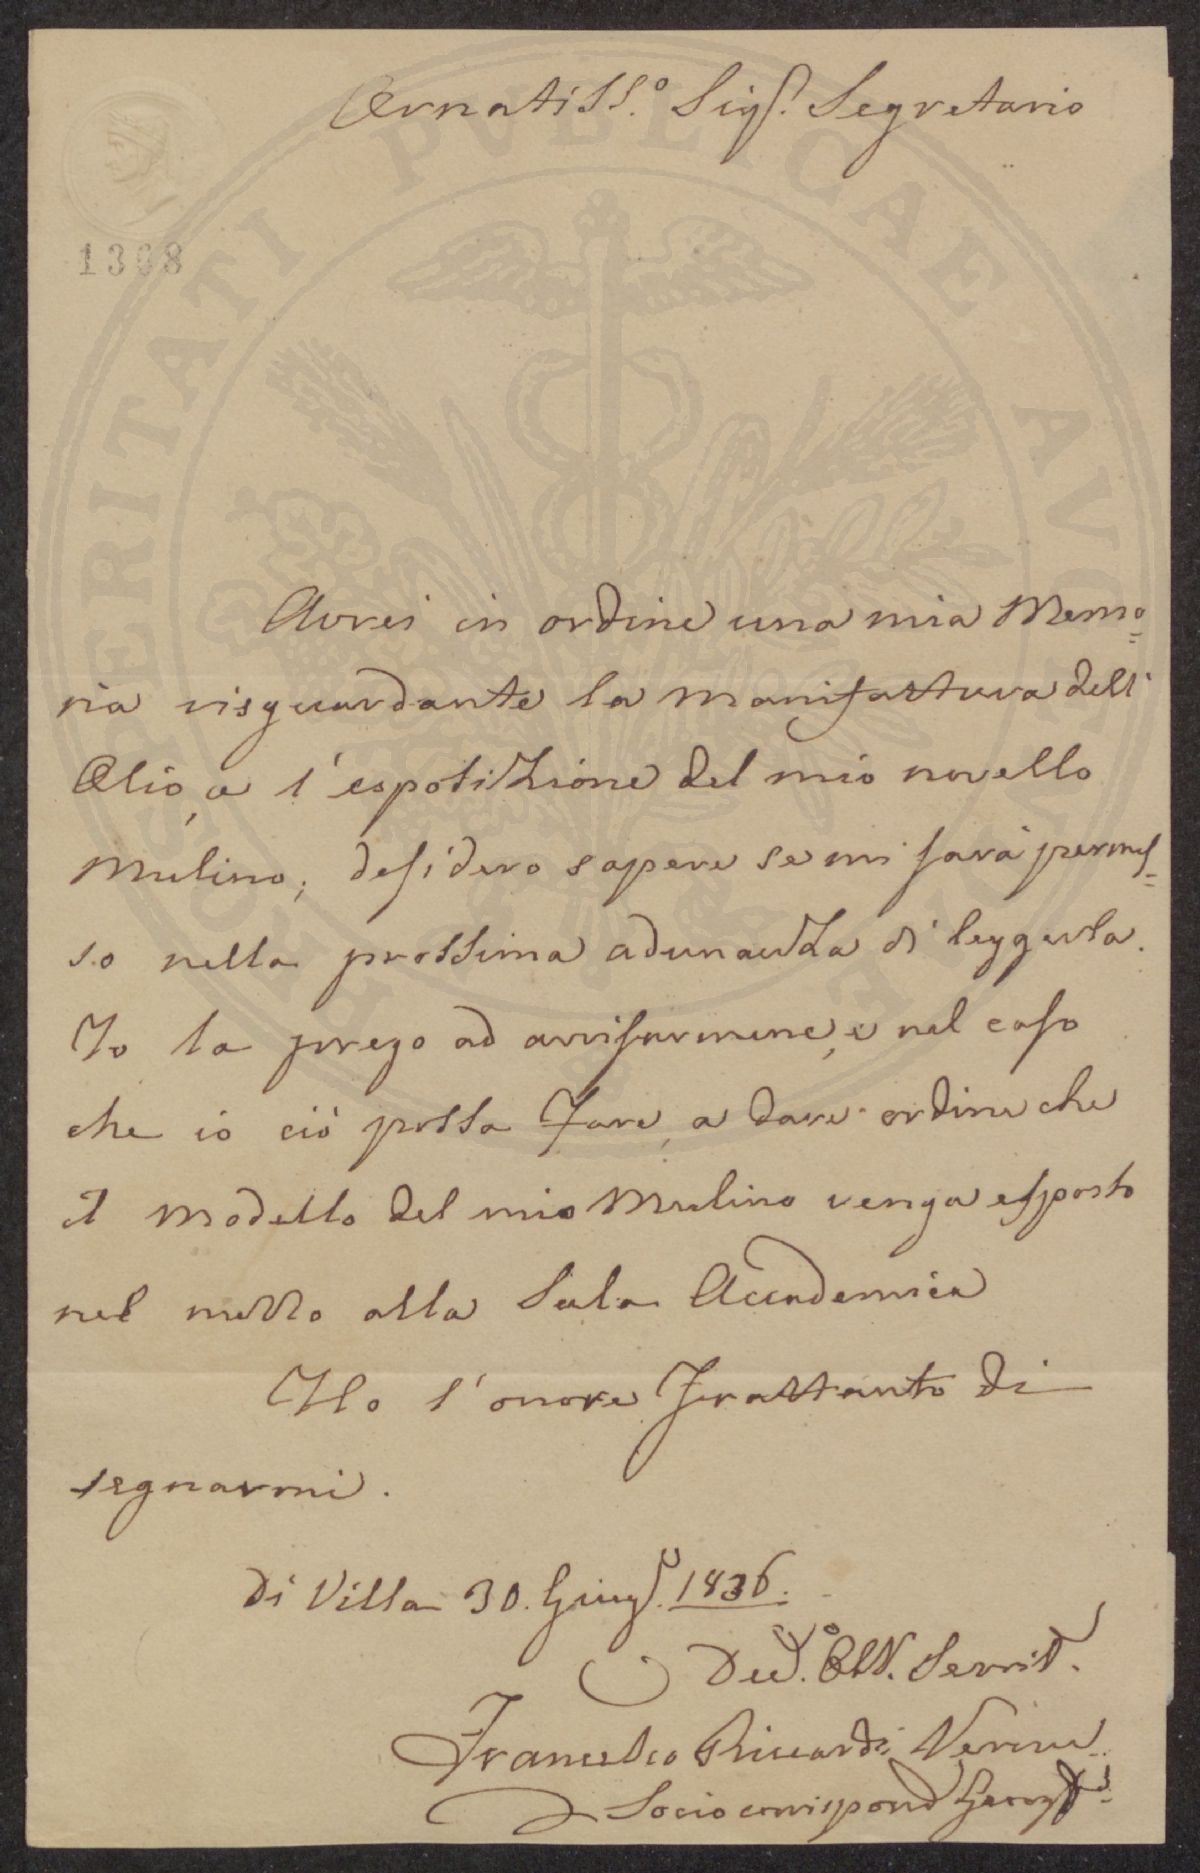 Ornatiss.º Sig.r Segretario
1308
Avrei in ordine una mia Memo=
ria risguardante la Manifattura dell'
Olio, e l'esposizione del mio novello
Mulino; desidero sapere se mi sarà permes=
so nella prossima adunanza di leggerla.
Io la prego ad avvisarmene, e nel caso
che io ciò possa fare, a dare ordine che
il Modello del mio Mulino venga esposto
nel mezzo alla Sala Accademica
Ho l'onore frattanto di
segnarmi.
Di Villa 30. Giug.º 1836.
Dev.º Obb. Servit.
Francesco Riccardi Vernac
Socio corrispond
PROSPERITATI PVBLICAE AVGENDAE